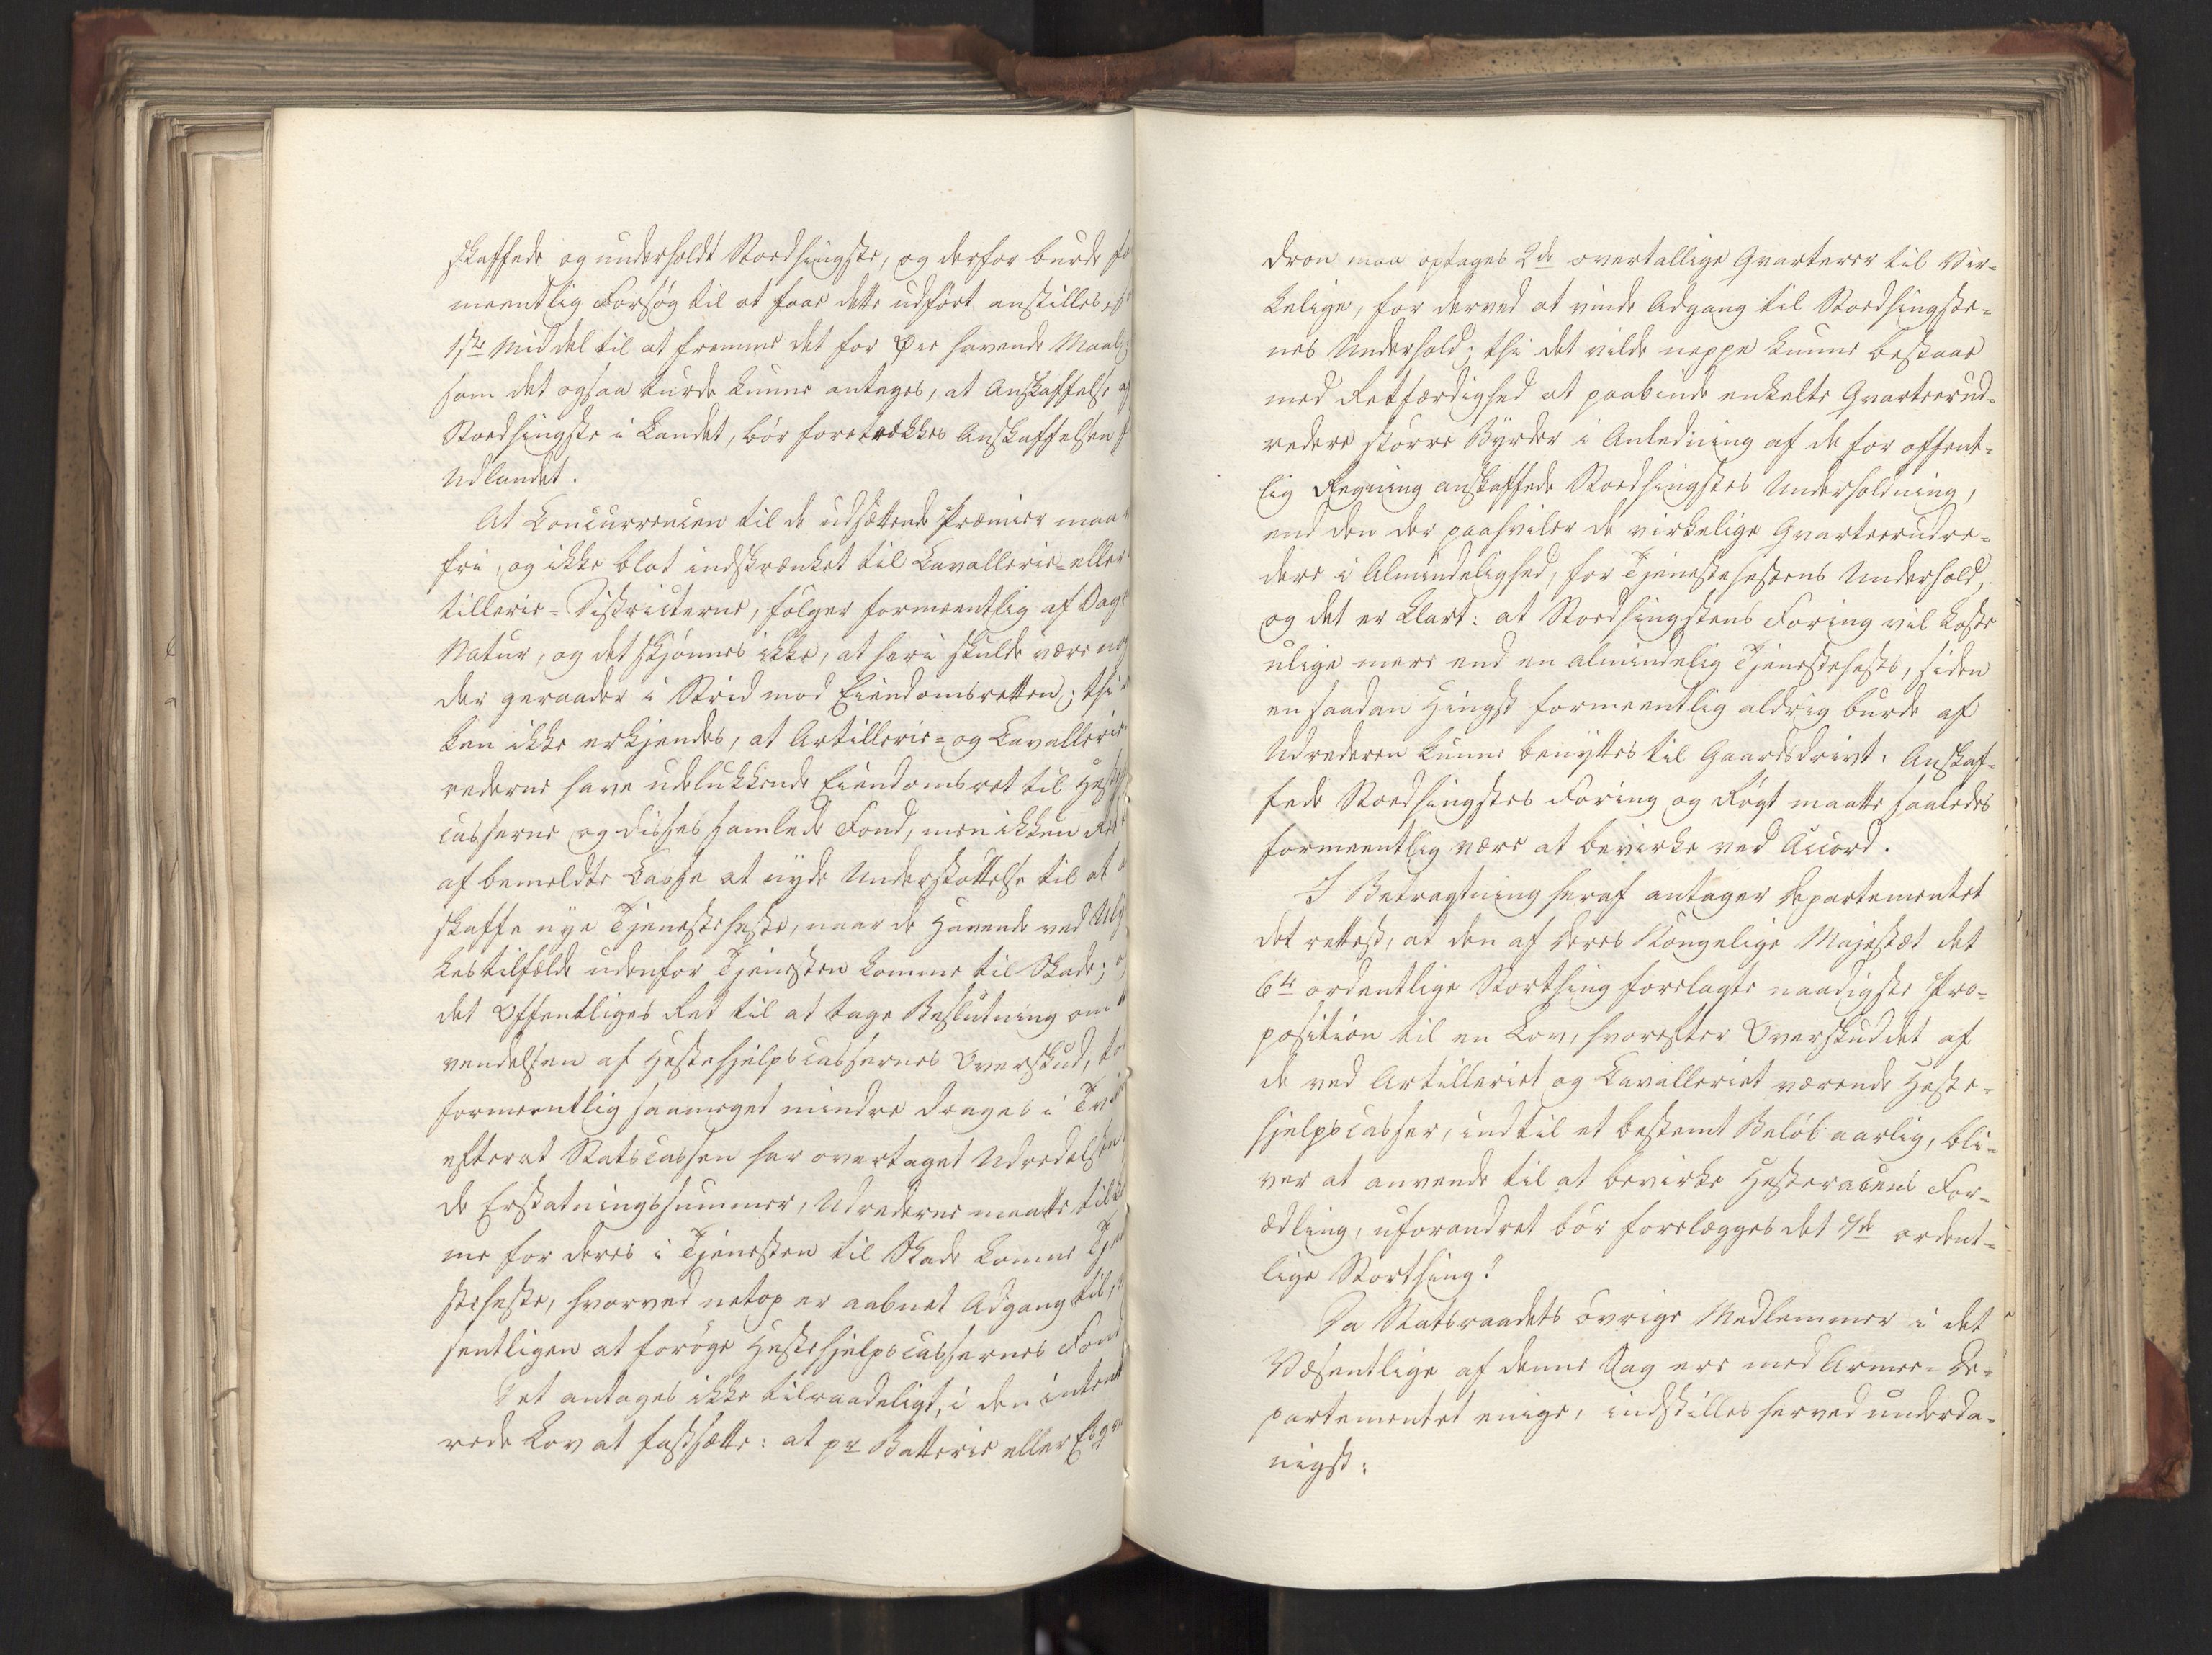 skaffede og underholdt Stodhingste, og derfor burde fo
meentlig Forsøg til at faae dette udført anstilles,
1ste Middel til at fremme det for Øie havende Maal;
som det ogsaa turde kunne antages, at Anskaffelse a
Stodhingste i Landet, bør foretrækkes Anskaffelsen f
Udlandet.
At Concurrencen til de udsættende Præmier maa
fri, og ikke blot indskrænket til Cavallerie- eller
tillerie-Districterne, følger formeentlig af Sage
Natur, og det skjønnes ikke, at heri skulde være nog
der geraader i Strid mod Eiendomsretten; thi
kan ikke erkjendes, at Artillerie- og Cavallerie
rederne have udelukkende Eiendomsret til Heste
casserne og disses samlede Fond, men ikkun Ret
af bemeldte Casse at nyde Understøttelse til at
skaffe nye Tjenesteheste, naar de Havende ved Uly
kestilfælde udenfor Tjenesten komme til Skade; o
det Offentliges Ret til at tage Beslutning om
vendelsen af Hestehjelpscassernes Overskud, to
formeentlig saameget mindre drages i Tvi
efterat Statscassen har overtaget Udredelsen
de Erstatningssummer, Udrederne maatte tilko
me for deres i Tjenesten til Skade komne Tjene
steheste, hvorved netop er aabnet Adgang til,
sentligen at forøge Hestehjelpscassernes Fond
Det antages ikke tilraadeligt, i den intend
rede Lov at fastsætte: at pr Batterie eller Esqva
dron maa optages 2de overtallige Qvarterer til Vir-
kelige, for derved at vinde Adgang til Stodhingste-
nes Underhold; thi det vilde neppe kunne bestaae
med Retfærdighed at paabinde enkelte Qvarteerud-
redere større Byrder i Anledning af de for offent-
lig Regning anskaffede Stodhingstes Underholdning,
end den der paahviler de virkelige Qvarteerudre-
dere i Almindelighed, for Tjenestehestens Underhold,
og det er klart: at Stodhingstens Foring vil koste
ulige mere end en almindelig Tjenestehests, siden
en saadan Hingst formeentlig aldrig burde af
Udrederen kunne benyttes til Gaardsdrivt. Anskaf-
fede Stodhingstes Foring og Røgt maatte saaledes
formeentlig være at bevirke ved Accord.
I Betragtning heraf antager Departementet
det rettest, at den af Deres Kongelige Majestæt det
6te ordentlige Storthing forelagte naadigste Pro-
position til en Lov, hvorefter Overskuddet af
de ved Artilleriet og Cavalleriet værende Heste-
hjelpscasser, indtil et bestemt Beløb aarlig, bli-
ver at anvende til at bevirke Hesteracens For-
ædling, uforandret bør forelægges det 7de ordent-
lige Storthing."
Da Statsraadets øvrige Medlemmer i det
Væsentlige af denne Sag ere med Armee-De-
partementet enige, indstilles herved underda-
nigst: